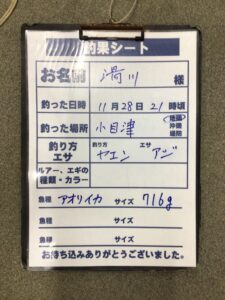 釣果シート
お名前 湯川 様
釣った日時 11月28日21時頃
釣った場所 小目津 地磯 沖磯 堤防
釣り方 エサ 釣り方 ヤエン エサ アジ
ルアー、エギの種類・カラー
魚種 アオリイカ サイズ 716g
魚種 サイズ
魚種 サイズ
お持込みありがとうございました。